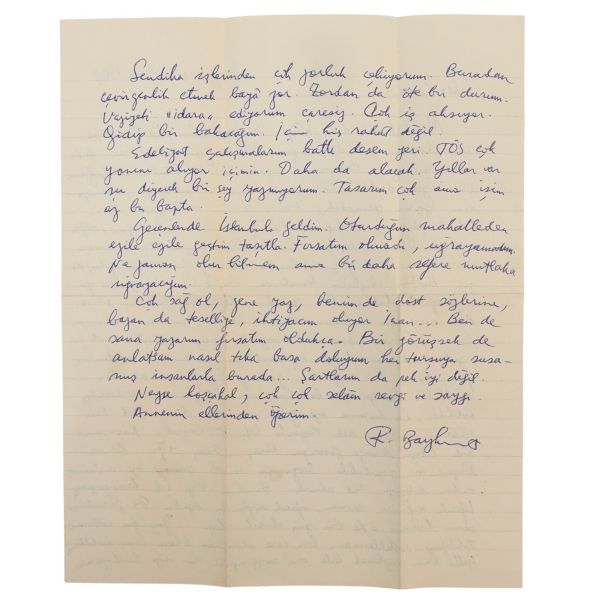 Sendika işlerinden çok zorluk çekiyorum. Buradan
çevirgenlik etmek bayâ zor. Zordan da öte bir durum.
Vaziyeti "idare" ediyorum çaresiz. Çok iş aksıyor.
Gidip bir bakacağım. İçim hiç rahat değil.
Edebiyat çalışmalarım battı desem yeri. TÖS çok
zamanı alıyor içimin. Daha da alacak. Yıllar var
şu diyecek bir şey yazmıyorum. Tasarım çok ama işin
az bu başta.
Geçenlerde İstanbula geldim. Oturduğun mahalleden
ezile ezile geçtim taşıtla. Fırsatım olmadı, uğrayamadım.
Ne zaman olur bilmem ama bir daha sefere mutlaka
uğrayacağım.
Çok sağ ol, gene yaz, benim de dost sözlerine,
bazan da teselliye, ihtiyacım oluyor inan... Ben de
sana yazarım fırsatım oldukça. Bir görüşsek de
anlatsam nasıl tıka basa doluyum her turşuya susa-
mış insanlarla burada... Şartlarım da pek iyi değil.
Neyse hoşçakal, çok çok selâm sevgi ve saygı.
Annenin ellerinden öperim.
F. Baykurt